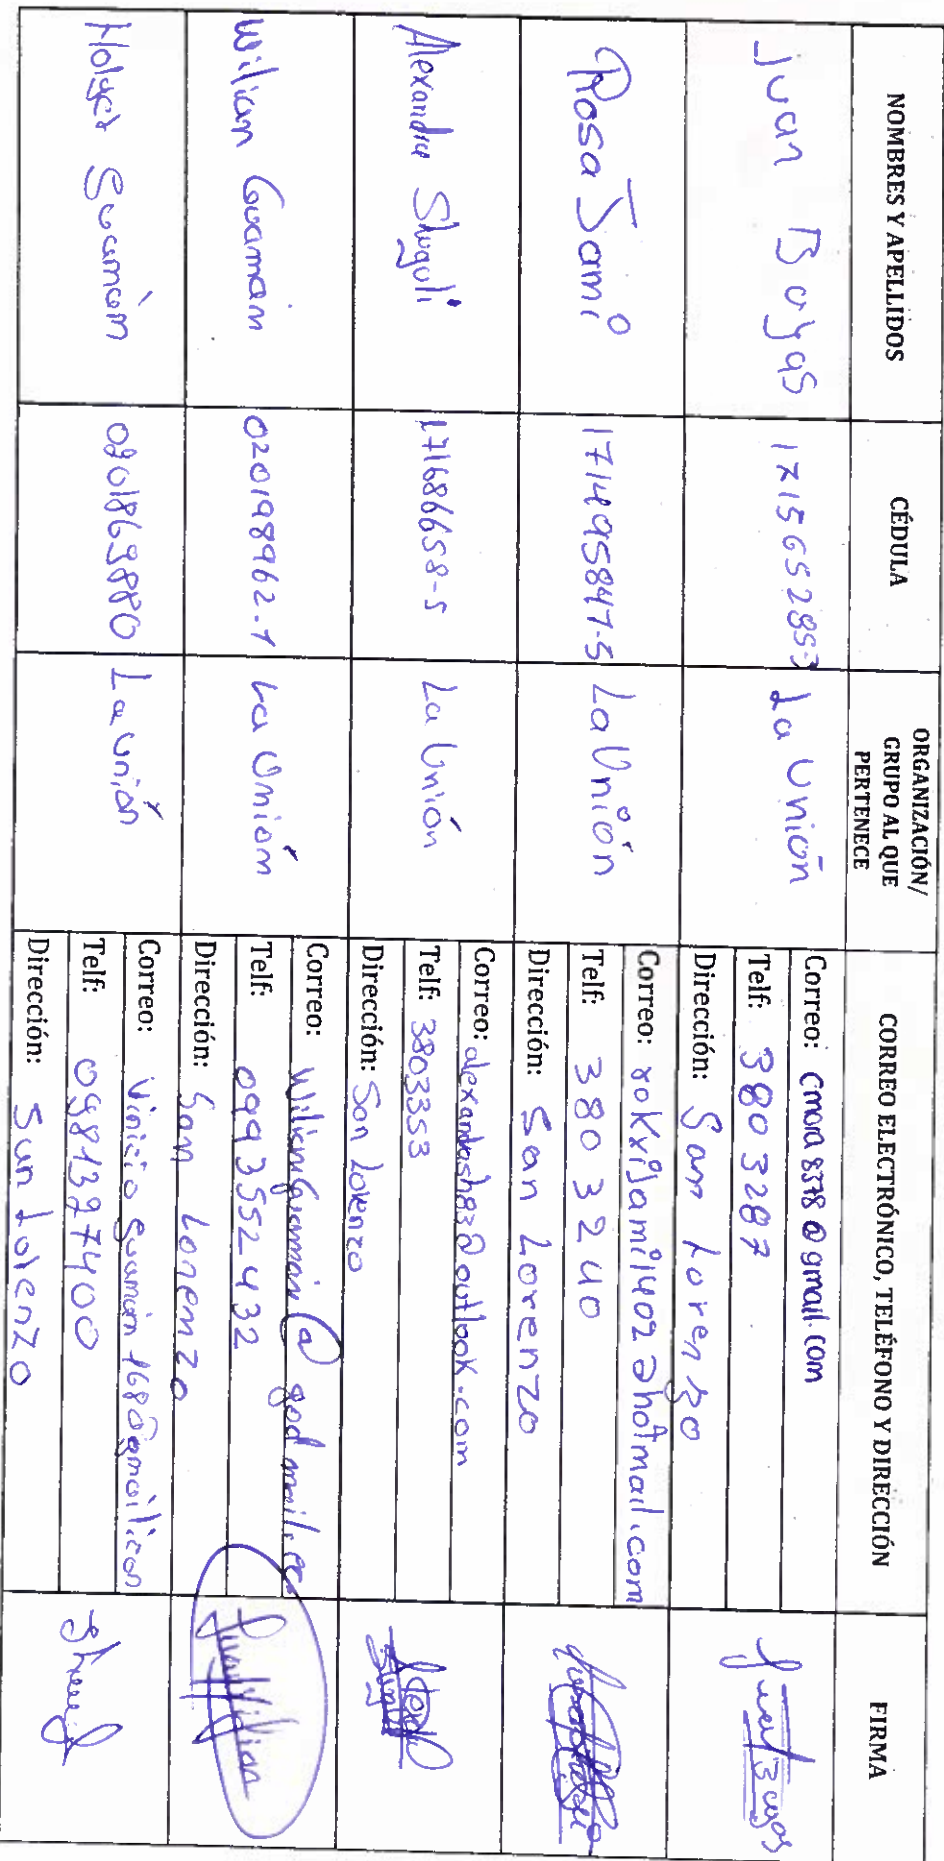 NOMBRES Y APELLIDOS
CÉDULA
ORGANIZACIÓN/
GRUPO AL QUE
PERTENECE
CORREO ELECTRÓNICO, TELÉFONO Y DIRECCIÓN
FIRMA
Juan Bayas
171565285-3
La Unión
Correo: cmora8378@gmail.com
Telf: 3803287
Dirección: San Lorenzo
Juan Bayas
Rosa Jami
171495847-5
La Unión
Correo: rokxijami1402@hotmail.com
Telf: 3803240
Dirección: San Lorenzo
Alexandra Shuguli
171686658-5
La Unión
Correo: alexandrash83@outlook.com
Telf: 3803353
Dirección: San Lorenzo
Wilian Guamán
020198962-1
La Unión
Correo:
Telf: 0993552432
Dirección: San Lorenzo
Holger Guamán
0201869880
La Unión
Correo:
Telf: 0981397400
Dirección: San Lorenzo